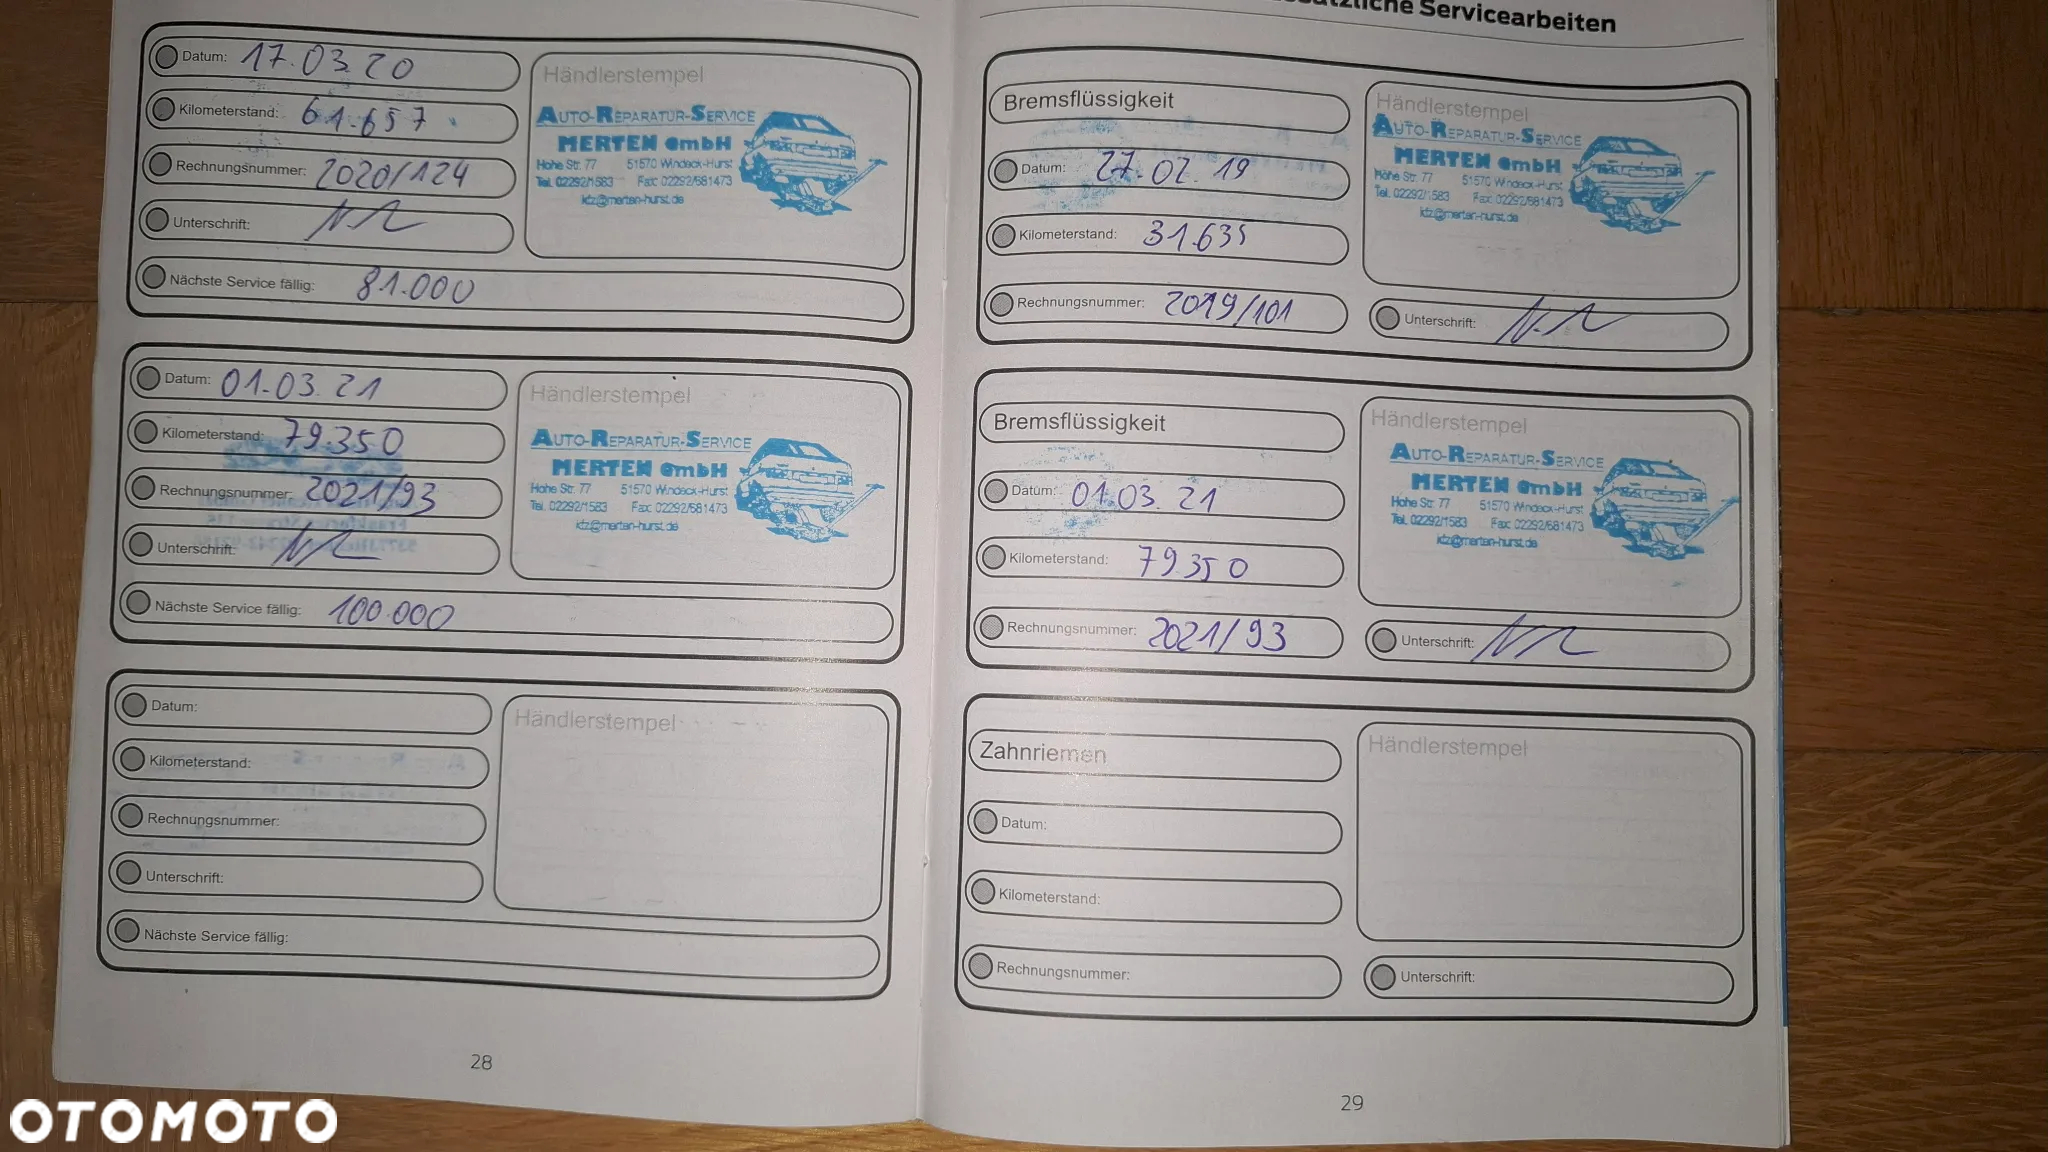 Datum: 17.03.20
Kilometerstand: 61.657
Rechnungsnummer: 2020/124
Unterschrift:
Nächste Service fällig: 81.000
Händlerstempel
AUTO-REPARATUR-SERVICE
MERTEN GmbH
Hohe Str. 77 51570 Windeck-Hurst
Tel. 02292/1583 Fax: 02292/681473
kfz@merten-hurst.de
Datum: 01.03.21
Kilometerstand: 79.350
Rechnungsnummer: 2021/93
Unterschrift:
Nächste Service fällig: 100.000
Händlerstempel
AUTO-REPARATUR-SERVICE
MERTEN GmbH
Hohe Str. 77 51570 Windeck-Hurst
Tel. 02292/1583 Fax: 02292/681473
kfz@merten-hurst.de
Datum:
Kilometerstand:
Rechnungsnummer:
Unterschrift:
Nächste Service fällig:
Händlerstempel
28
Servicearbeiten
Bremsflüssigkeit
Datum: 27.02.19
Kilometerstand: 31.635
Rechnungsnummer: 2019/101
Händlerstempel
AUTO-REPARATUR-SERVICE
MERTEN GmbH
Hohe Str. 77 51570 Windeck-Hurst
Tel. 02292/1583 Fax: 02292/681473
kfz@merten-hurst.de
Unterschrift:
Bremsflüssigkeit
Datum: 01.03.21
Kilometerstand: 79.350
Rechnungsnummer: 2021/93
Händlerstempel
AUTO-REPARATUR-SERVICE
MERTEN GmbH
Hohe Str. 77 51570 Windeck-Hurst
Tel. 02292/1583 Fax: 02292/681473
kfz@merten-hurst.de
Unterschrift:
Zahnriemen
Datum:
Kilometerstand:
Rechnungsnummer:
Händlerstempel
Unterschrift:
29
OTOMOTO